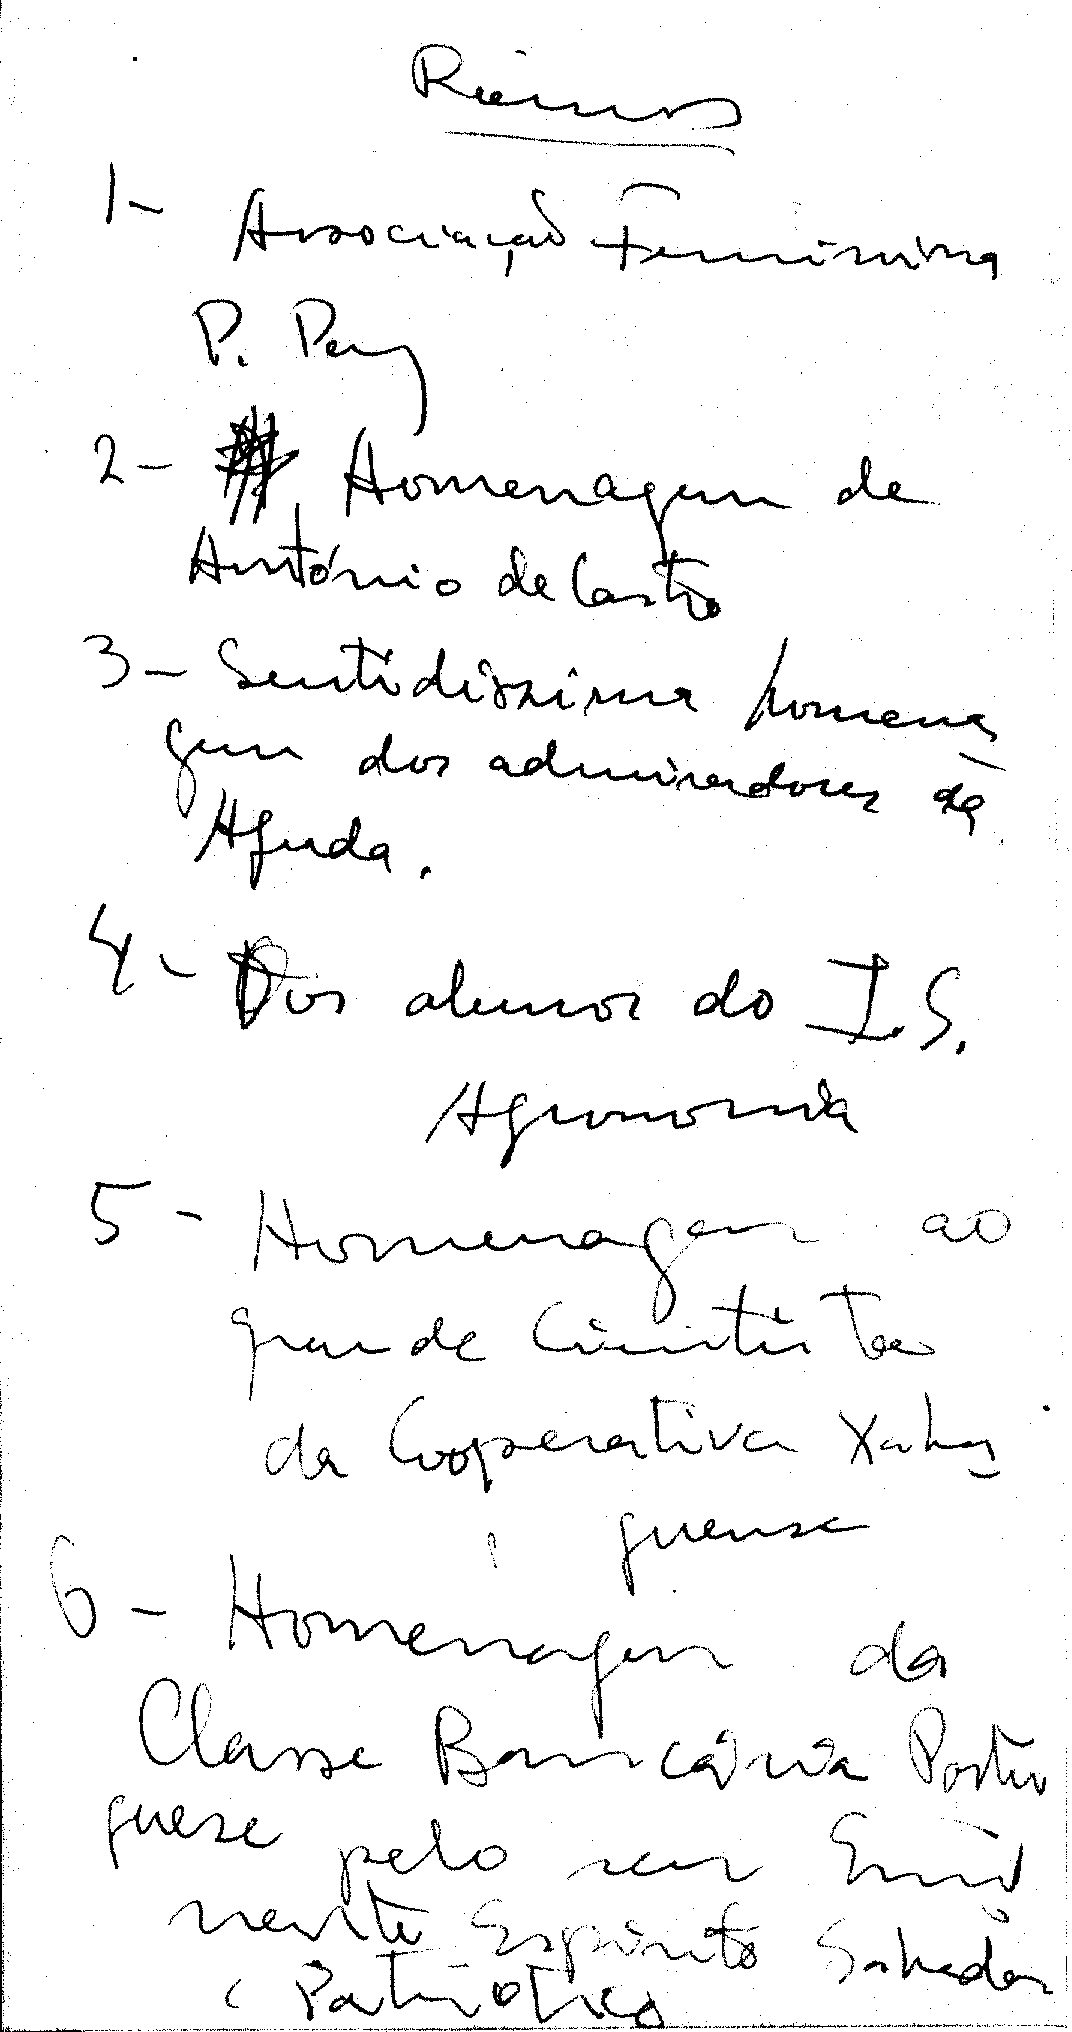 Ramos
1- Associação Feminina
P. Paz
2- Homenagem de
António de Castro
3- Sentidissima homena
gem dos admiradores da
Ajuda.
4- Dos alunos do I.S.
Agronomia
5- Homenagem ao
grande Cientista
da Cooperativa
guense
6- Homenagem da
Classe Bancária Portu
guesa pelo seu Emi
nente Espírito Sabedor
e Patriótico